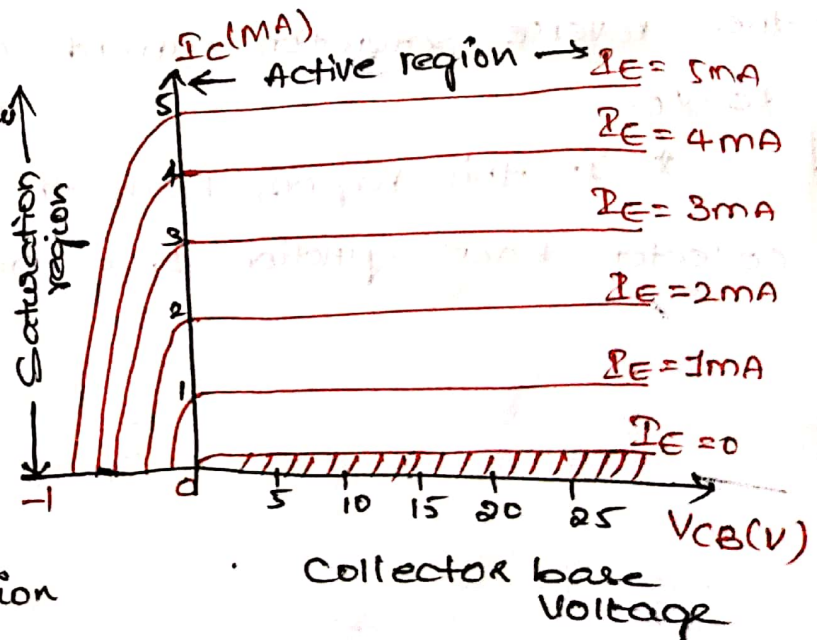 Ic(MA)
← Active region →
IE = 5mA
IE = 4mA
IE = 3mA
IE = 2mA
IE = 1mA
IE = 0
Saturation
region
5
4
3
2
1
-1
0
5
10
15
20
25
VCB(V)
Collector base
Voltage
ion